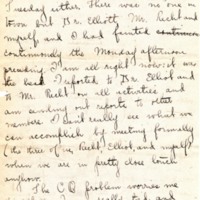 Tuesday either. There was no one in
town but Dr. Elliott, Mr. Richt and
myself and I had fainted
continuously the Monday afternoon
preceding. I am all right now: it was
the heat. I reported to Dr. Elliot and
to Mr. Richt on all activities and
am sending out reports to other
members. I can't really see what we
can accomplish by meeting formally
(the three of us, Richt, Elliot, and myself)
when we are in pretty close touch
anyhow.
The C.O. problem worries me
really ted, and